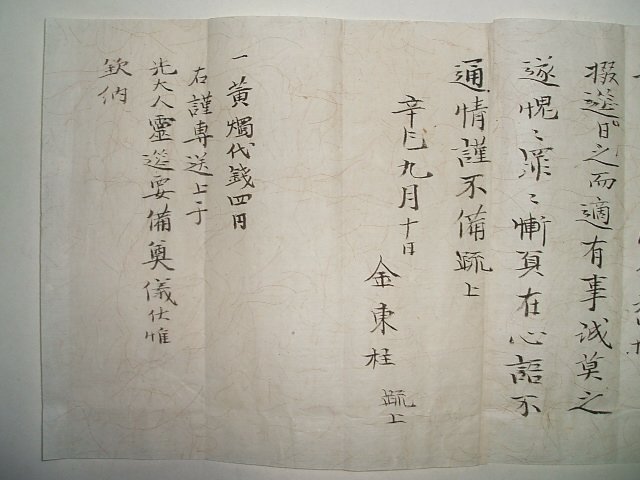 掇筵日之而適有事誠莫之
遂愧〻罪〻慚負在心語不
通情謹不備疏上
辛巳九月十日
金東柱 疏上
一 黃燭代錢四円
右謹專送上于
先大人靈筵要備奠儀仕惟
欽納